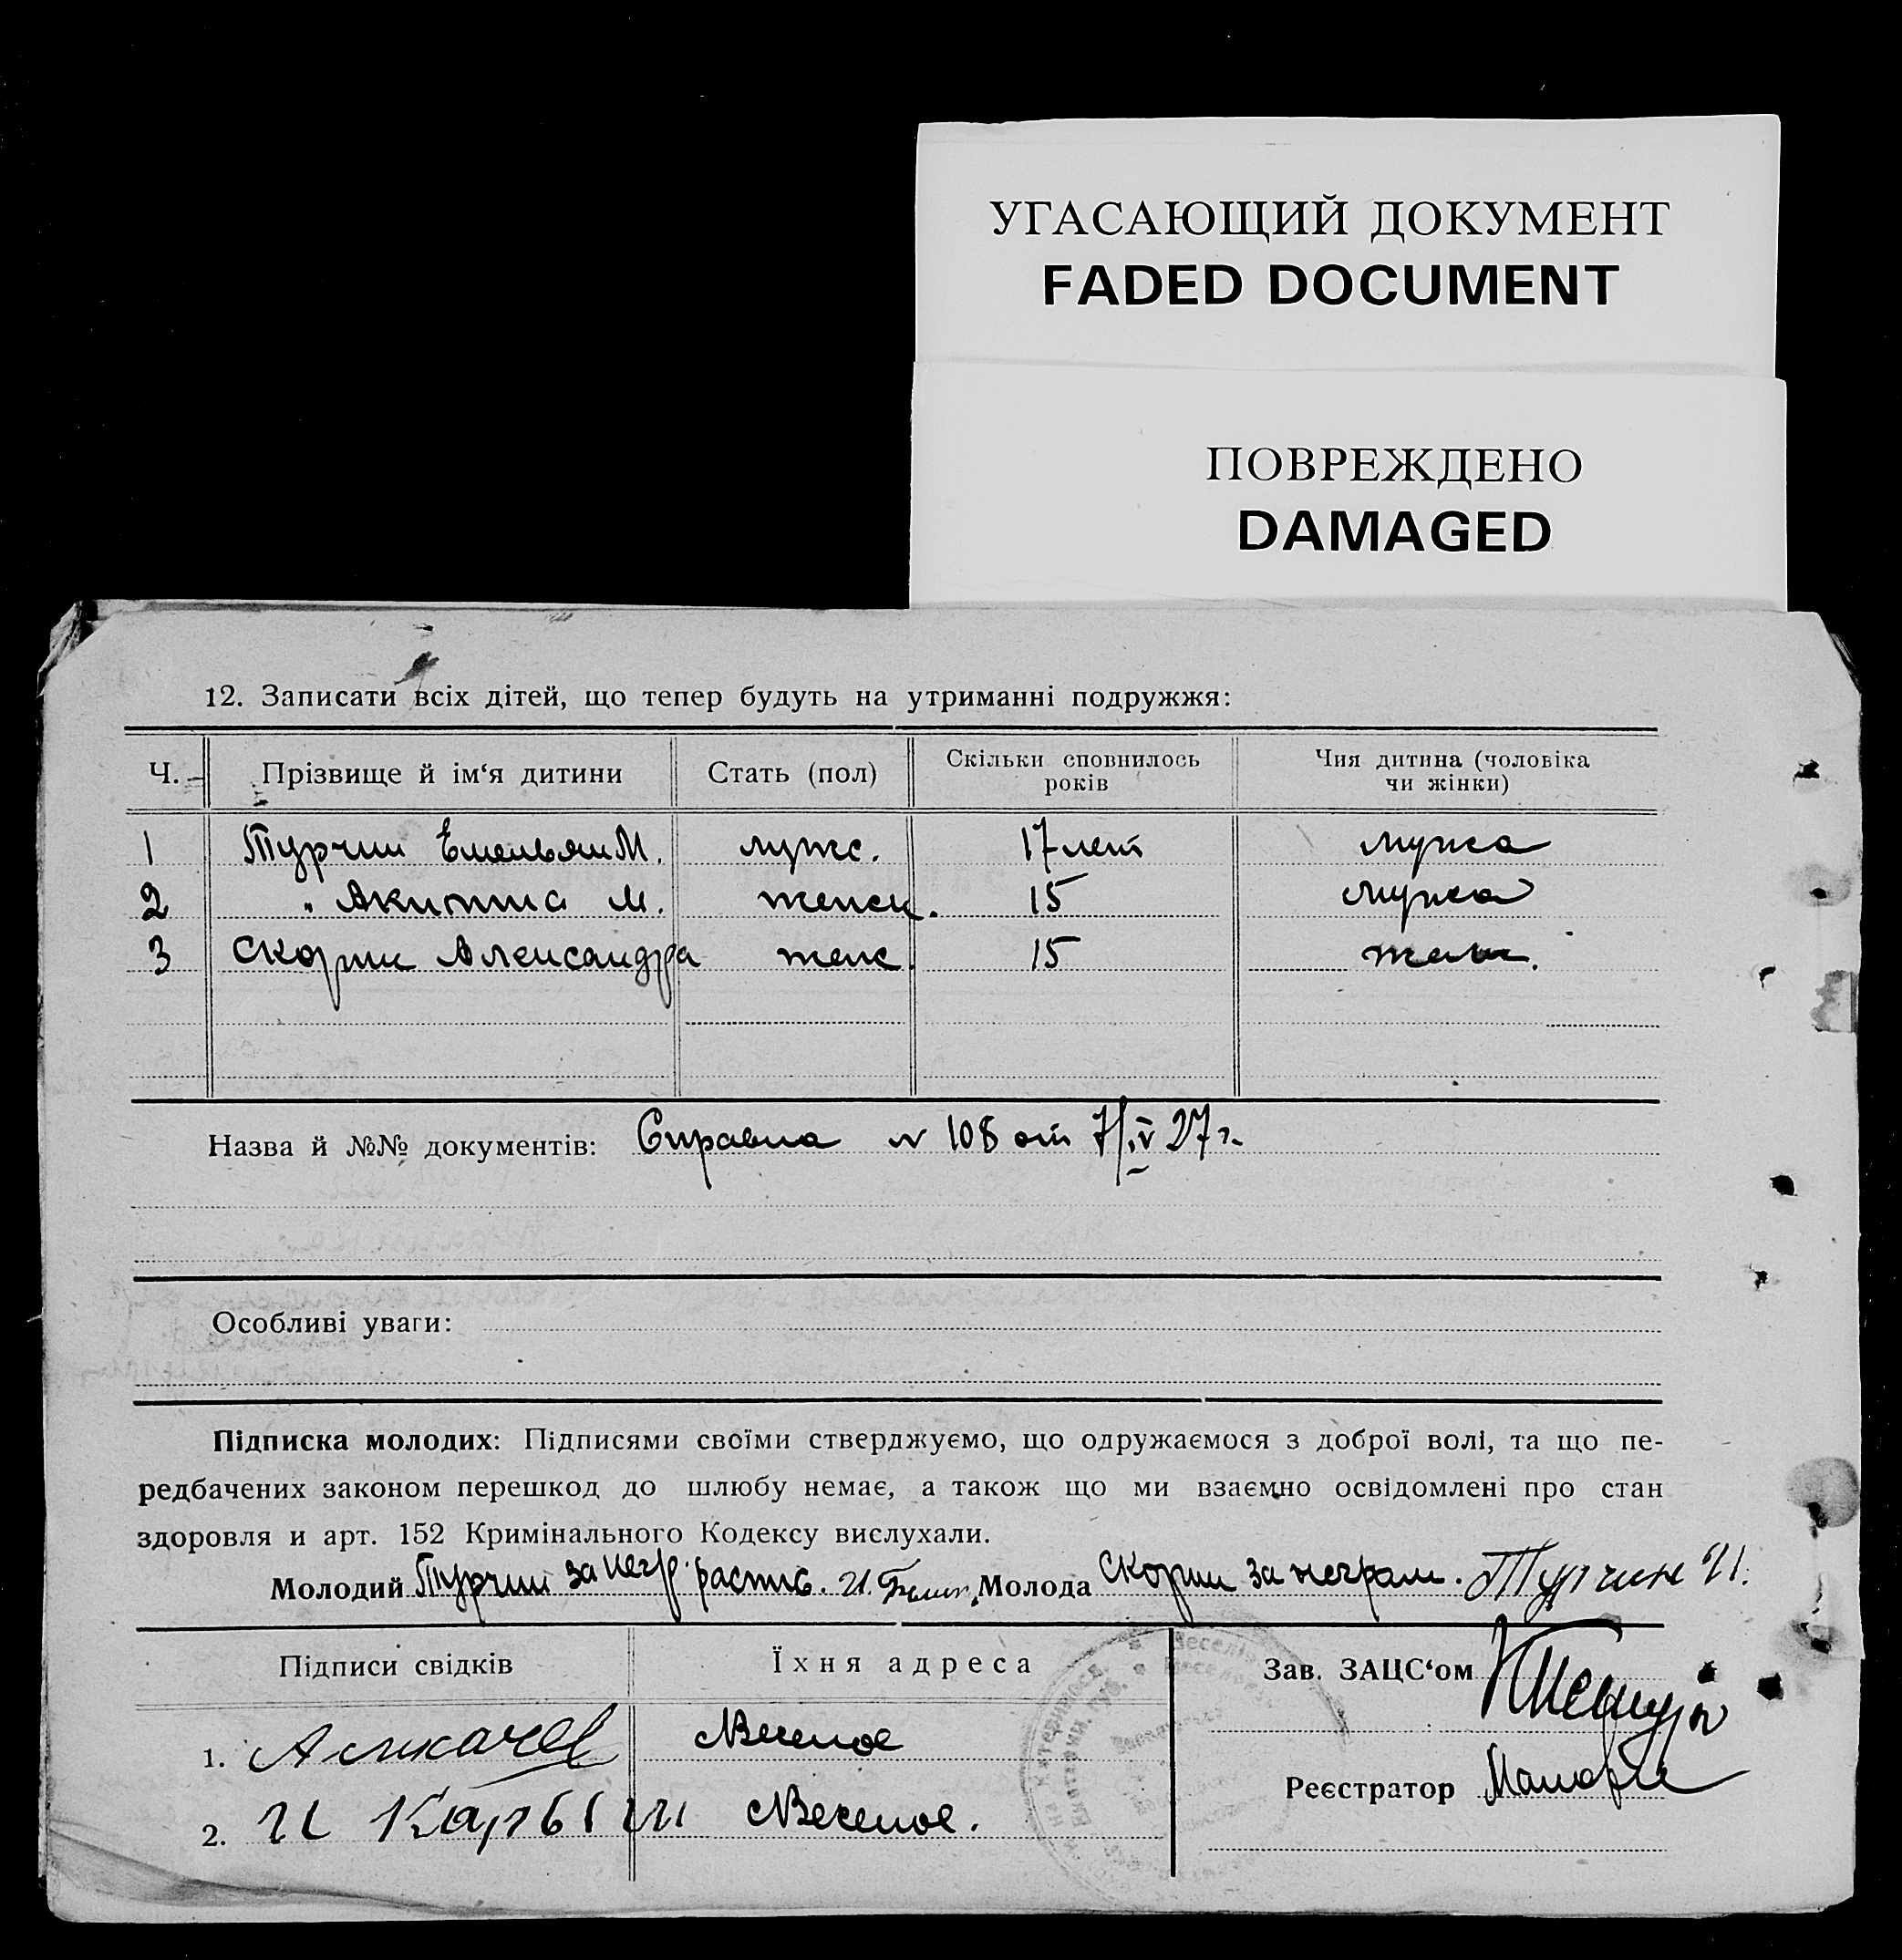 УГАСАЮЩИЙ ДОКУМЕНТ
FADED DOCUMENT
ПОВРЕЖДЕНО
DAMAGED
12. Записати всіх дітей, що тепер будуть на утриманні подружжя:
Ч. Прізвище й ім‘я дитини Стать (пол) Скільки сповнилось років Чия дитина (чоловіка чи жінки)
1 Турчин Емельян М. мужс. 17 лет мужа
2 " Акилина М. женск. 15 мужа
3 Скорик Александра женс. 15 жены.
Назва й №№ документів: Справка № 108 от 7/IV 27 г.
Особливі уваги:
Підписка молодих: Підписями своїми стверджуємо, що одружаємося з доброї волі, та що пе-
редбачених законом перешкод до шлюбу немає, а також що ми взаємно освідомлені про стан
здоровля и арт. 152 Кримінального Кодексу вислухали.
Молодий Турчин за негр. распис. И. Молода Скорик за неграм. Турчин И.
Підписи свідків Їхня адреса Зав. ЗАЦС‘ом
1. Веселое
Реєстратор
2. И Веселое.